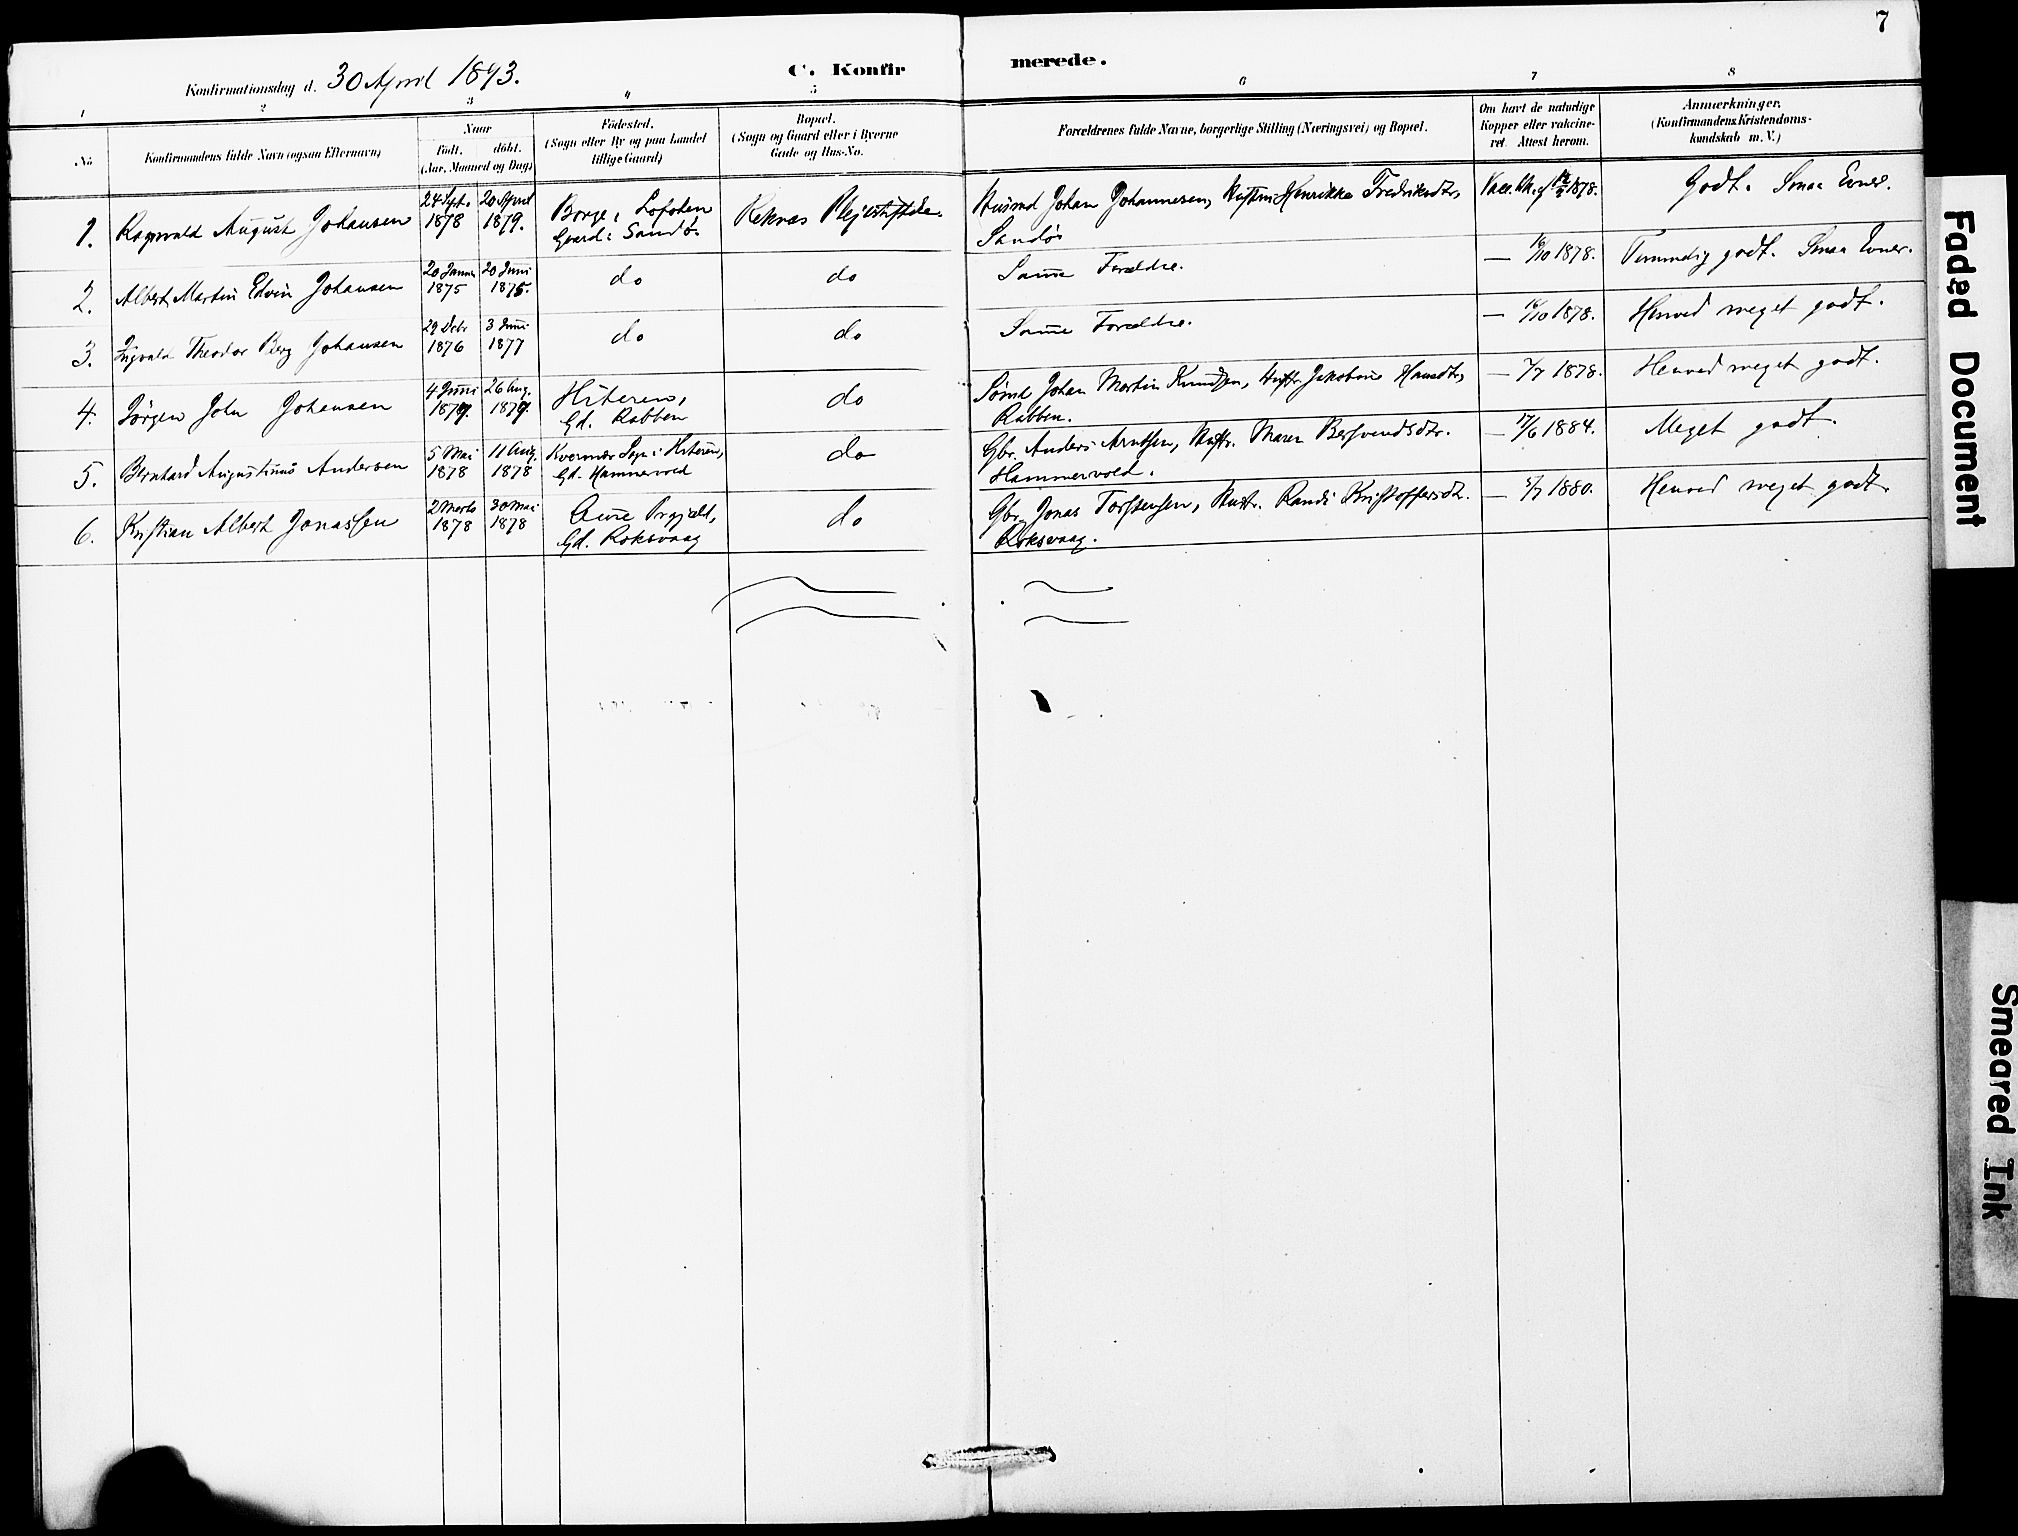 7
C. Konfirmerede.
Konfirmationsdag d. 30 April 1893.
1 2 3 4 5 6 7 8
No
Konfirmandens fulde Navn (ogsaa Efternavn)
Naar
Født. døbt.
(Aar, Maaned og Dag)
Fødested.
(Sogn eller By og paa Landet
tillige Gaard)
Bopæl.
(Sogn og Gaard eller i Byerne
Gade og Hus-No.
Forældrenes fulde Navne, borgerlige Stilling (Næringsvei) og Bopæl.
Om havt de naturlige
Kopper eller vakcine-
ret. Attest herom.
Anmærkninger.
(Konfirmandens Kristendoms-
kundskab m. V.)
1. Ragnvald August Johansen
24 Sept. 1878
20 April 1879.
Borge i Lofoten
Gaard: Sandø.
Reknæs Plejestiftelse.
Husmd Johan Johannesen, Hustru Henrikke Fredriksdtr,
Sandø
1878.
Godt. Smaa Evner.
2. Albert Martin Edvin Johansen
20 Januar 1875
20 Juni 1875.
do
do
Samme Forældre.
— 16/10 1878.
Temmelig godt. Smaa Evner.
3. Ingvald Theodor Berg Johansen
29 Debr 1876
3 Juni 1877
do
do
Samme Forældre.
— 16/10 1878.
Henved meget godt.
4. Jørgen John Johansen
4 Juni 1877.
26 Aug. 1877.
Hiteren,
Gd. Rabben
do
Sømd Johan Martin Knudsen, Hustr. Jakobine Hansdtr,
Rabben.
— 7/7 1878.
Henved meget godt.
5. Bernhard Augustinus Andersen
5 Mai 1878
11 Aug. 1878
Kvernvær Sogn i Hiteren,
Gd. Hammervold
do
Gbr. Anders Arntsen, Hustr. Maren Bersvendsdtr.
Hammervold.
— 17/6 1884.
Meget godt.
6. Kristian Albert Jonassen
2 Marts 1878
30 Mai 1878
Aure Prgjeld,
Gd. Roksvaag
do
Gbr. Jonas Torstensen, Hustr. Randi Kristoffersdtr.
Roksvaag.
— 5/7 1880.
Henved meget godt.
Faded Document
Smeared Ink